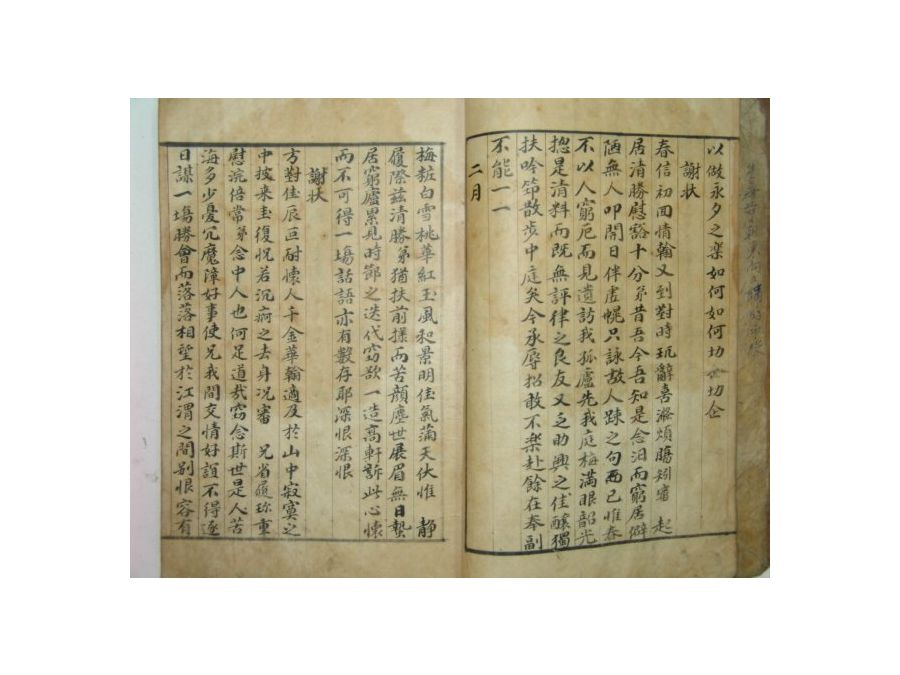 以做永夕之楽如何如何切
謝状
春信初回情翰又到對時玩辭喜滌煩膓矧審 起
居清勝慰豁十分弟昔吾今吾知是念汨而窮居僻
陋無人叩開日伴虛幌只詠故人踈之句而已惟春
不以人窮厄而見遺訪我孤廬先我庭梅滿眼韶光
揔是清料而既無評律之良友又乏助興之佳釀獨
扶吟笻散步中庭矣今承辱招敢不楽赴餘在奉副
不能一一
二月
梅粧白雪桃華紅玉風和景明佳氣滿天伏惟 靜
履際兹清勝弟猶扶前㨾而苦顔塵世展眉無日蟄
居窮廬累見時節之迭代窃欲一造高軒訴此心懐
而不可得一塲話語亦有數存耶深恨深恨
謝状
方對佳辰叵耐懐人千金華翰適及於山中寂寞之
中披来圭復怳若沉痾之去身况審 兄省履珎重
慰浣倍常弟念中人也何足道㢤窃念斯世是人苦
海多少憂冗魔障好事使兄我間交情好誼不得逐
日謀一塲勝會而落落相望於江渭之間别恨容有